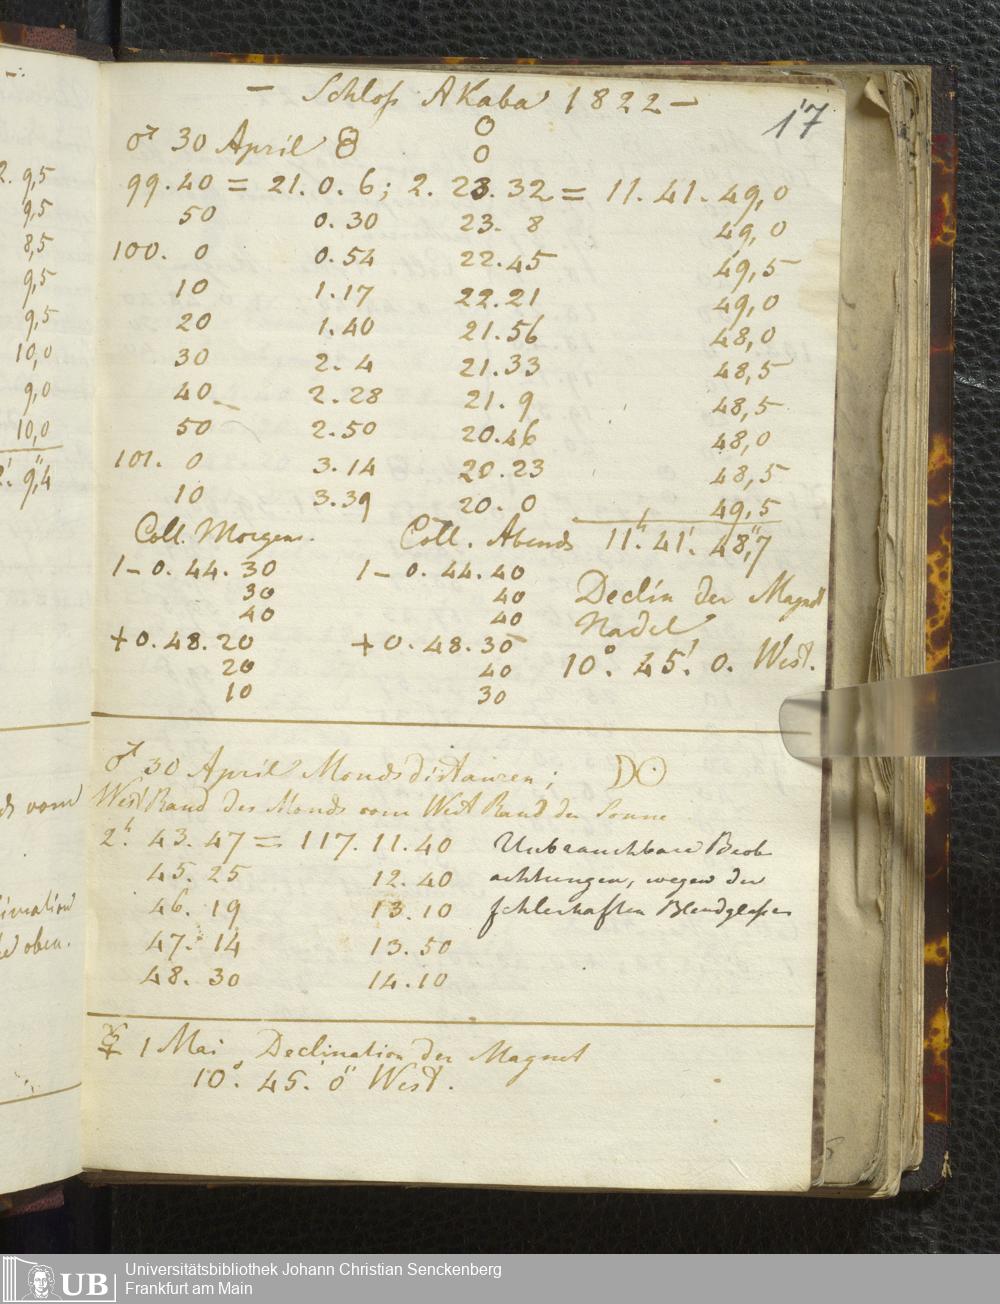 – Schloß AKaba 1822 –
17
♂ 30 April
99.40 = 21.0.6; 2.23.32 = 11.41.49,0
50 0.30 23.8 49,0
100. 0 0.54 22.45 49,5
10 1.17 22.21 49,0
20 1.40 21.56 48,0
30 2.4 21.33 48,5
40 2.28 21.9 48,5
50 2.50 20.46 48,0
101. 0 3.14 20.23 48,5
10 3.39 20.0 49,5
Coll. Morgens. Coll. Abends 11h. 41'. 48",7
1 – 0.44.30 1 – 0.44.40 Declin der Magnet
30 40
40 40 Nadel
+ 0.48.20 + 0.48.30 10°. 45'. 0. West.
20 40
10 30
♂ 30 April Monds distanzen: ☽☉
West Rand des Monds vom West Rand der Sonne
2h. 43.47 = 117.11.40 Unbrauchbare Beob
45.25 12.40 achtungen, wegen der
46.19 13.10 fehlerhaften Blendgläser
47.14 13.50
48.30 14.10
☿ 1 Mai Declination der Magnet
10°. 45.' 0" West.
2. 9,5
9,5
8,5
9,5
9,5
10,0
9,0
10,0
2'. 9",4
vom
oben.
UB
Universitätsbibliothek Johann Christian Senckenberg
Frankfurt am Main